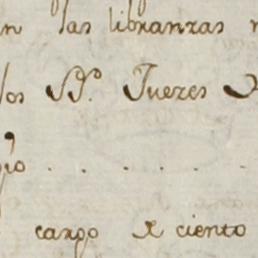 en las libranzas
los S.res Juezes
gio . . . . .
cargo de ciento